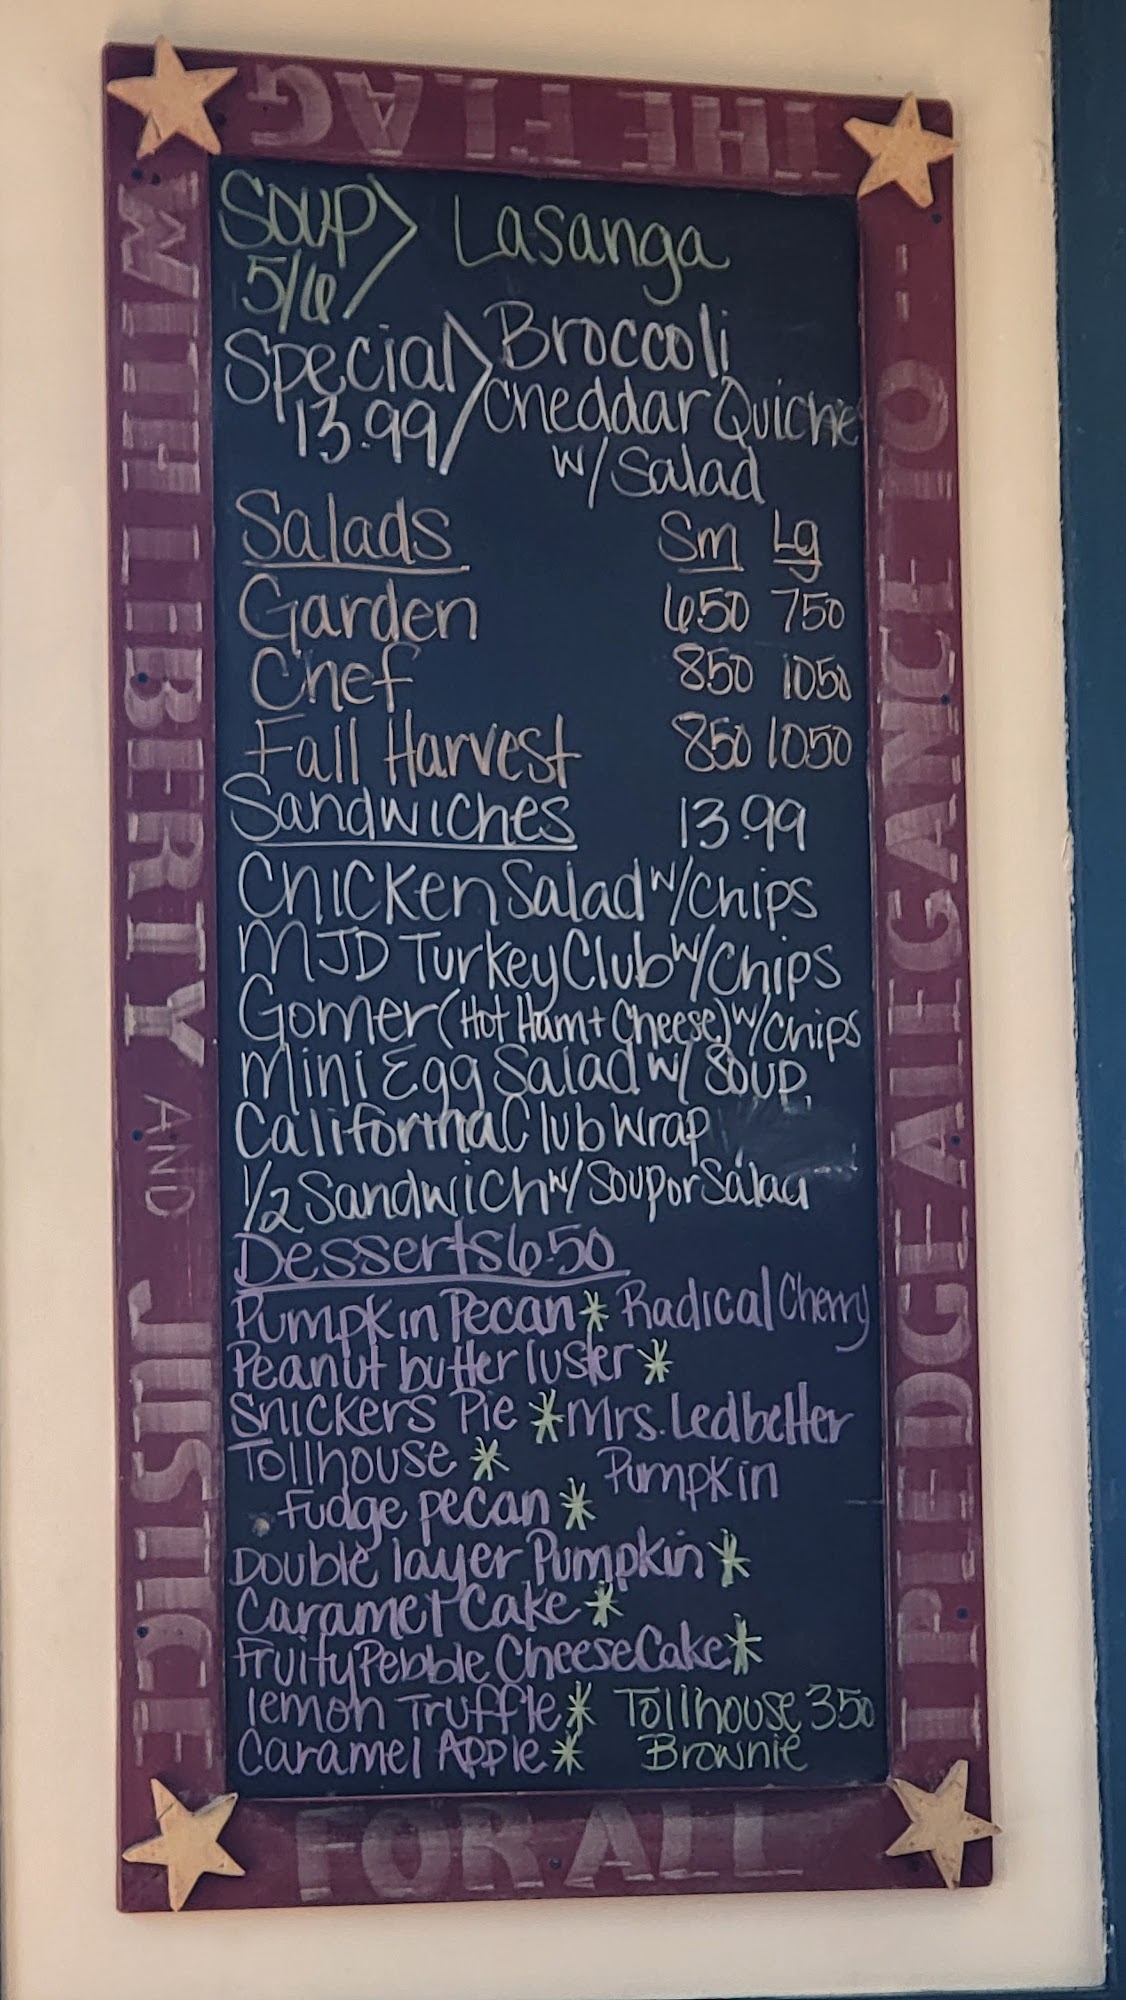 THE FLAG
WITH LIBERTY AND JUSTICE
FOR ALL
I PLEDGE ALLEGIANCE TO --
SOUP> Lasanga
5/6
Special> Broccoli
13.99 Cheddar Quiche
w/ Salad
Salads Sm Lg
Garden 650 750
Chef 850 1050
Fall Harvest 850 1050
Sandwiches 13.99
Chicken Salad w/ Chips
MJD Turkey Club w/ Chips
Gomer (Hot Ham + Cheese) w/ Chips
Mini Egg Salad w/ Soup
California Club Wrap
1/2 Sandwich w/ Soup or Salad
Desserts 6.50
Pumpkin Pecan * Radical Cherry
Peanut butter luster *
Snickers Pie * Mrs. Ledbetter
Tollhouse * Pumpkin
Fudge pecan *
Double layer Pumpkin *
Caramel Cake *
Fruity Pebble CheeseCake *
lemon Truffle * Tollhouse 350
Caramel Apple * Brownie